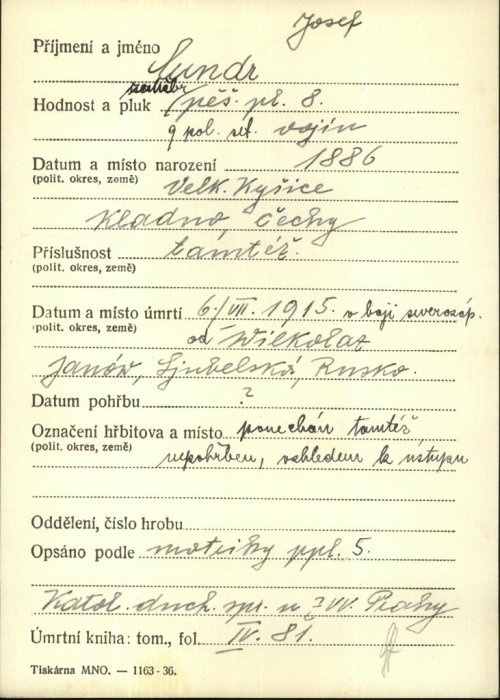 Josef
Příjmení a jméno Šundr
Hodnost a pluk pěš. pl. 8.
9 pol. set. vojín
Datum a místo narození 1886
(polit. okres, země) Velk. Kyšice
Kladno, Čechy
Příslušnost tamtéž.
(polit. okres, země)
Datum a místo úmrtí 6./VII. 1915. v boji severozáp.
(polit. okres, země) od Wilkolaz
Janów, Ljubelská, Rusko.
Datum pohřbu ?
Označení hřbitova a místo ponechán tamtéž
(polit. okres, země) nepohřben, vzhledem k ústupu
Oddělení, číslo hrobu
Opsáno podle matriky ppl. 5.
Katol. duch. spr. u ZVV. Prahy
Úmrtní kniha: tom., fol. IV. 81.
Tiskárna MNO. — 1163-36.